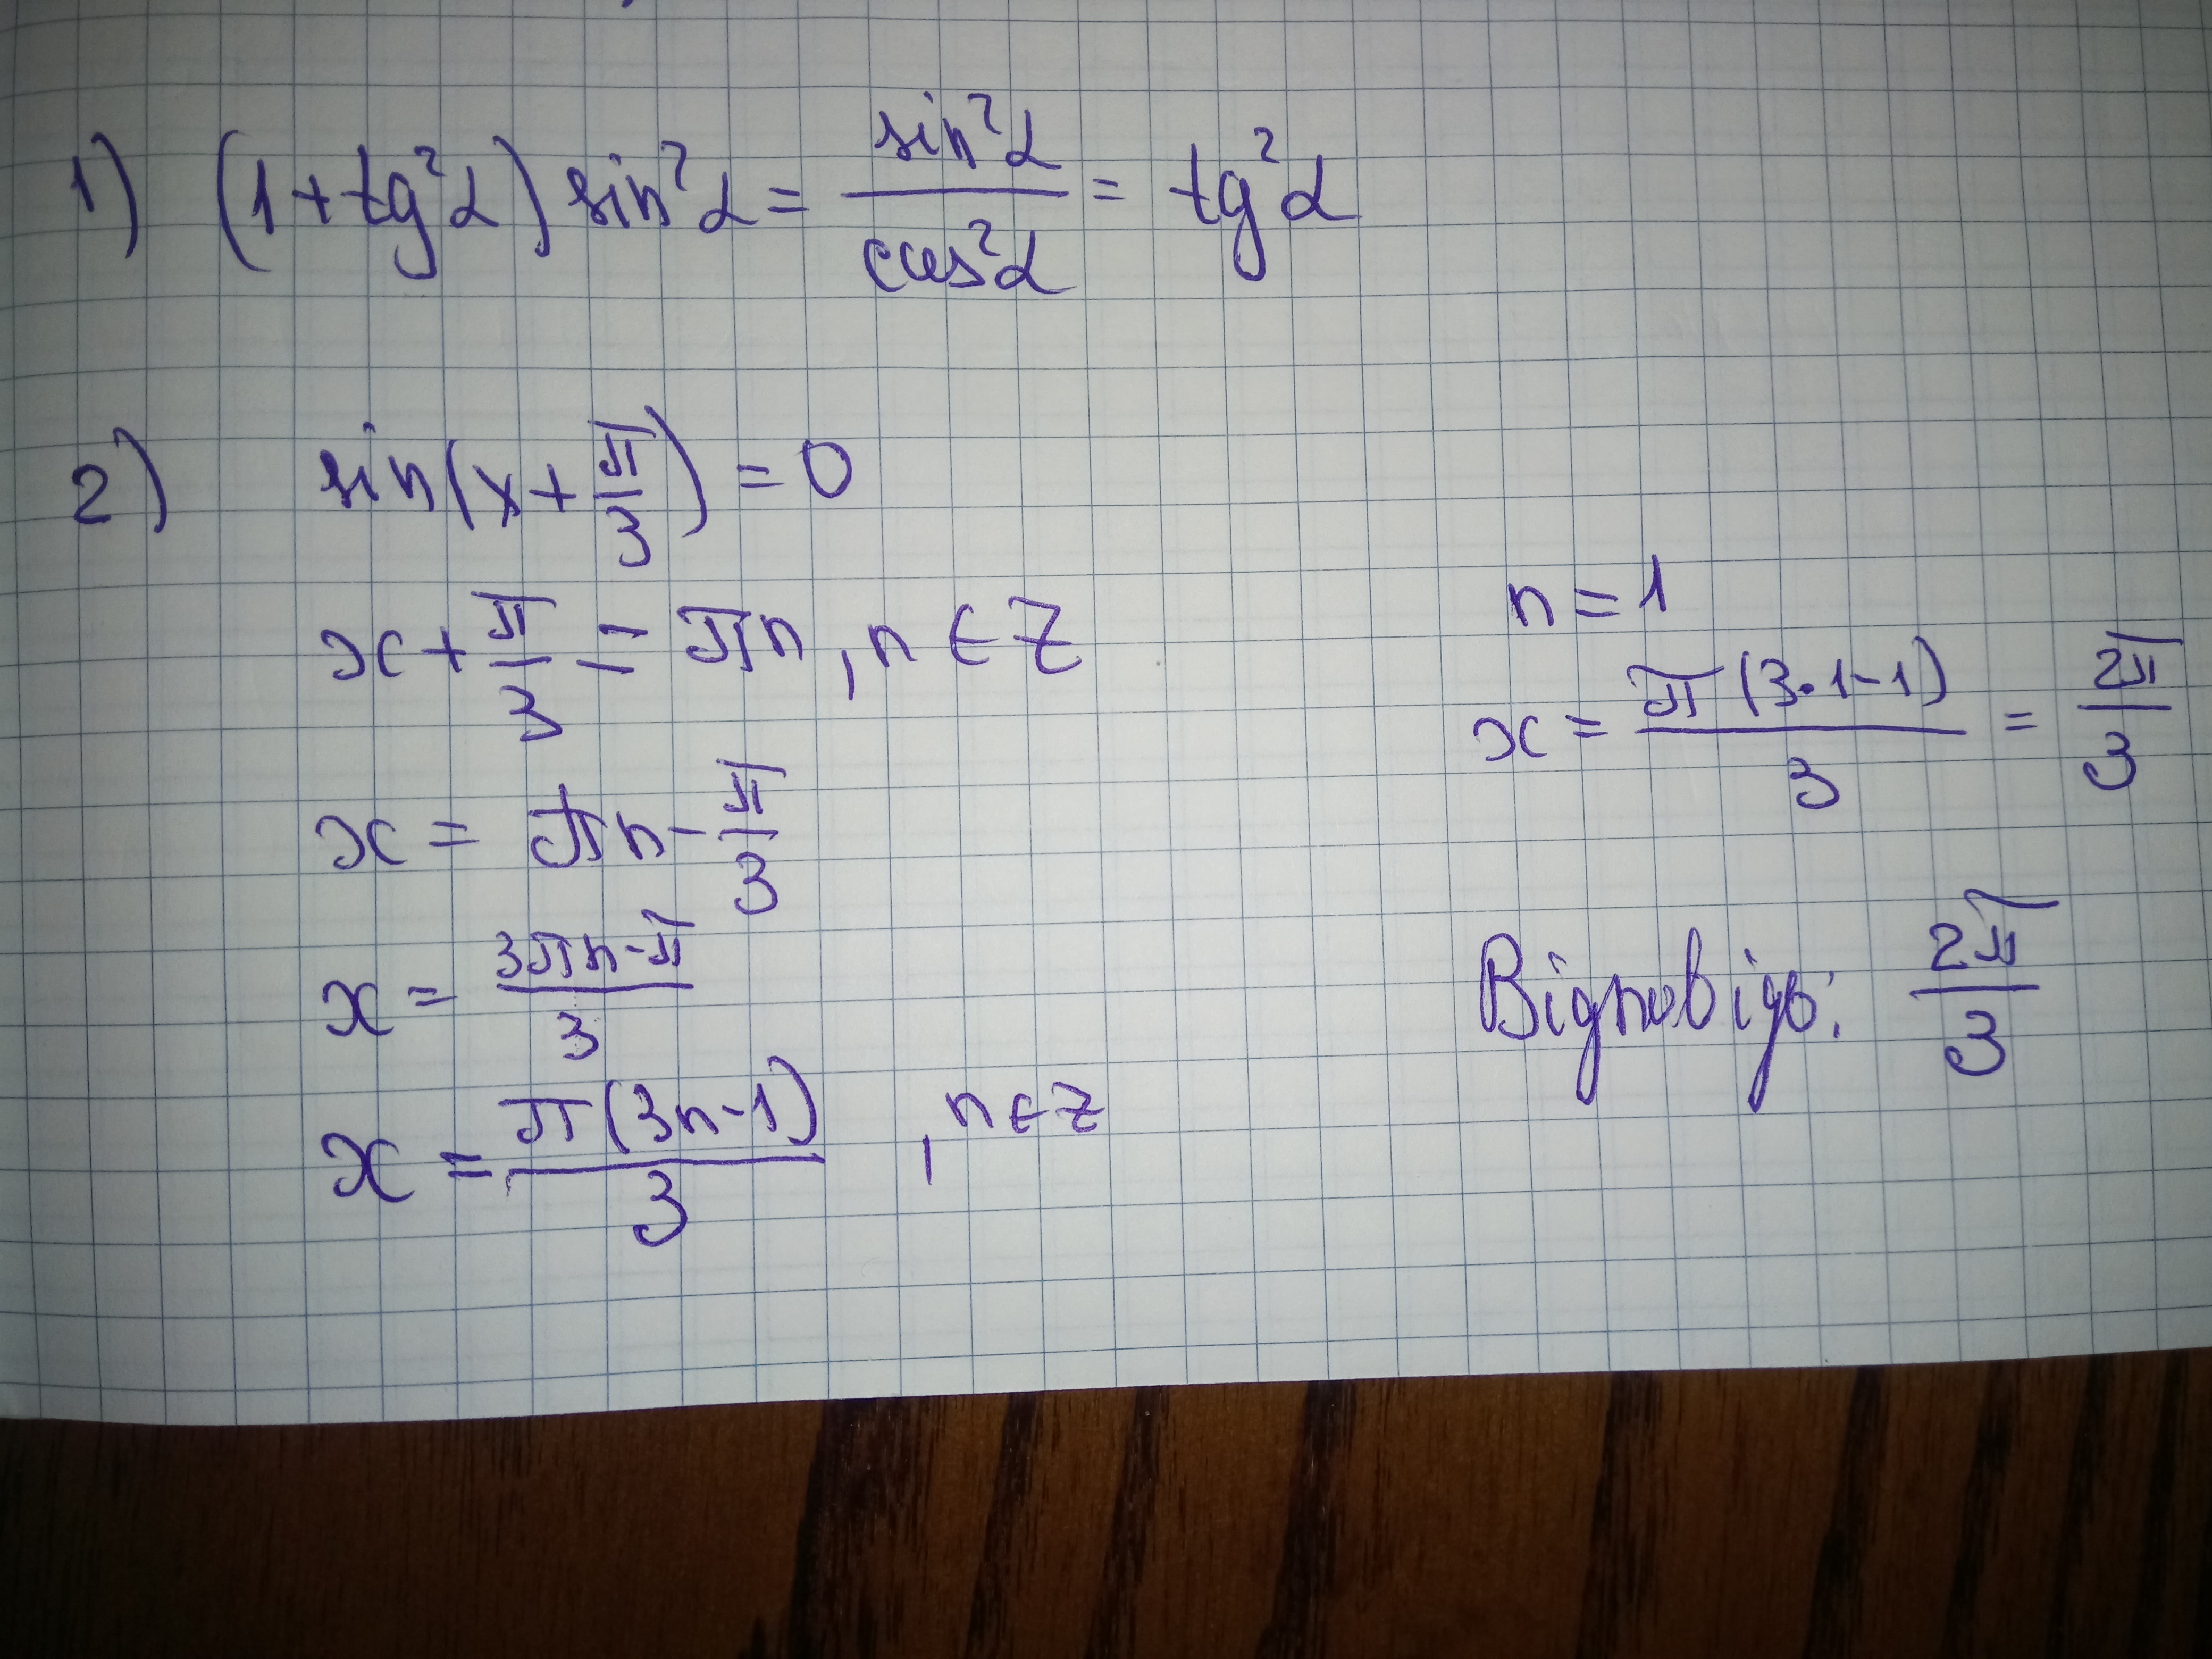 1) (1 + tg²α) sin²α = sin²α / cos²α = tg²α
2) sin(x + π/3) = 0
x + π/3 = πn, n ∈ Z
x = πn - π/3
x = (3πn - π)/3
x = π(3n - 1)/3, n ∈ Z
n = 1
x = π(3·1 - 1)/3 = 2π/3
Відповідь: 2π/3